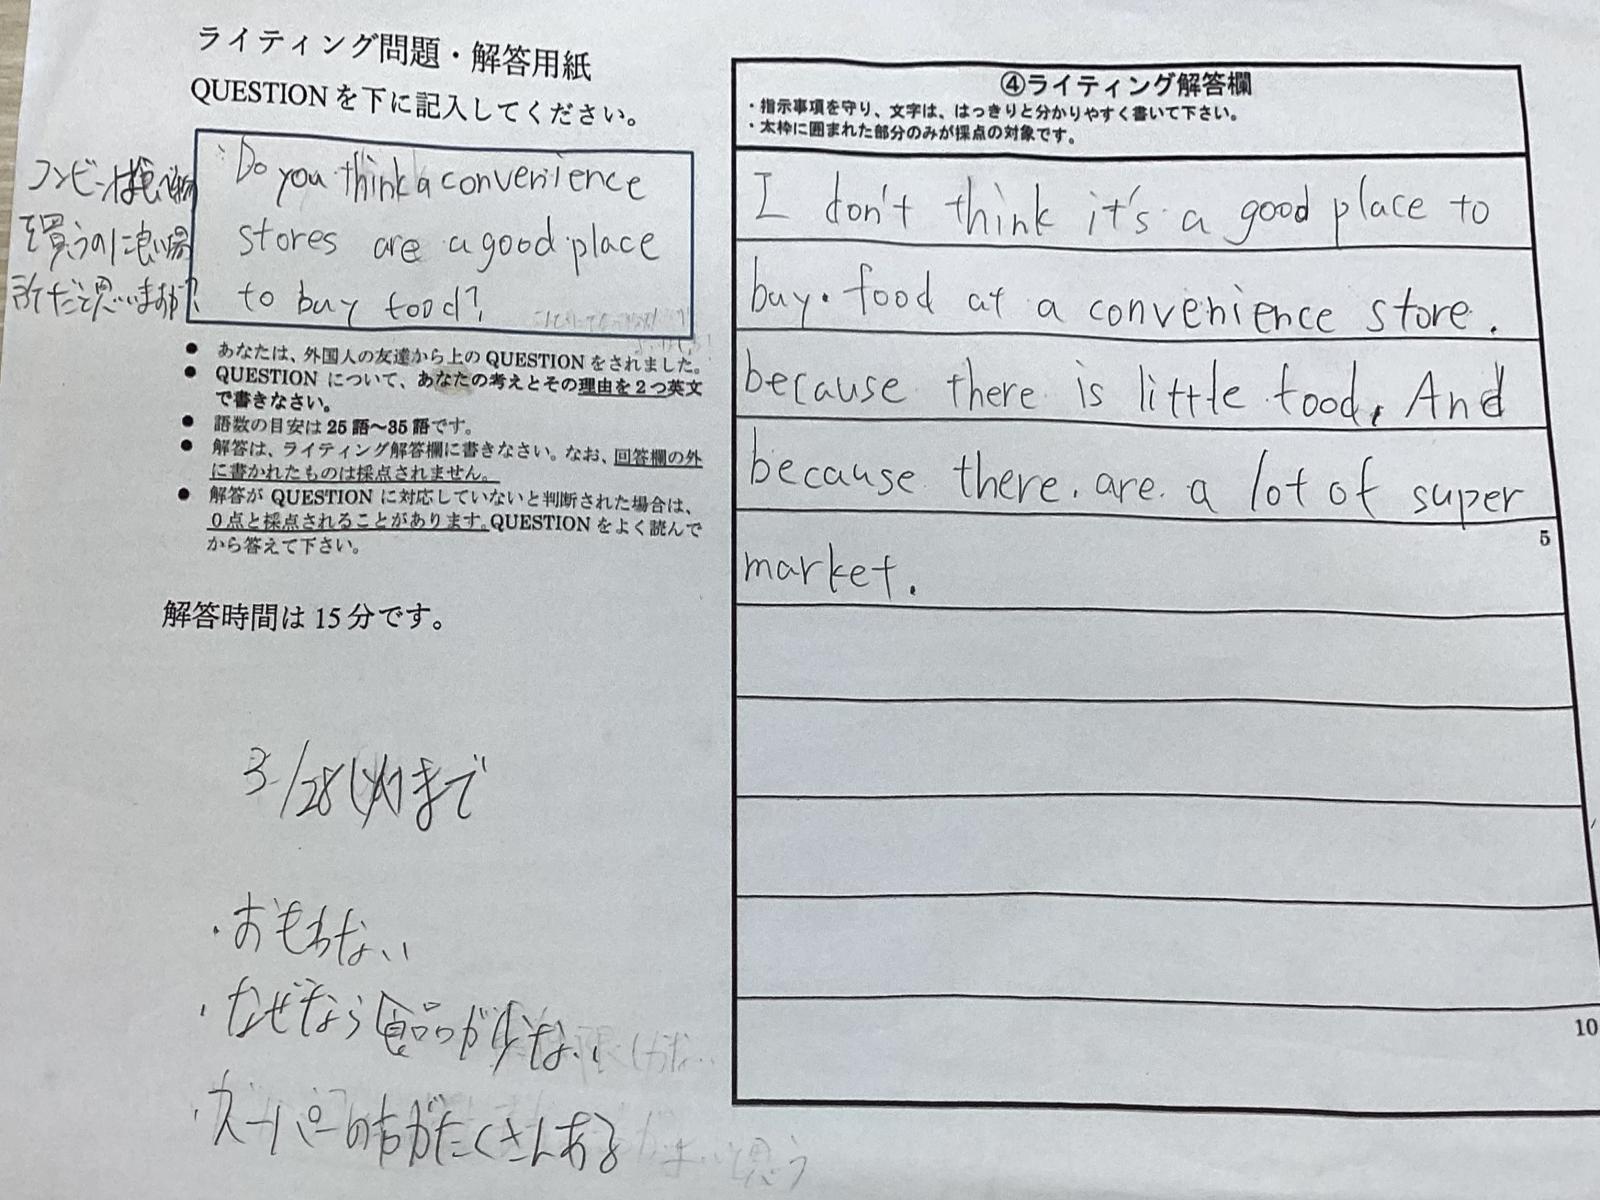 ライティング問題・解答用紙
QUESTIONを下に記入してください。
コンビニは食べ物
を買うのに良い場
所だと思いますか?
Do you think a convenience
stores are a good place
to buy food?
● あなたは、外国人の友達から上の QUESTION をされました。
● QUESTION について、あなたの考えとその理由を2つ英文
で書きなさい。
● 語数の目安は 25 語～35 語です。
● 解答は、ライティング解答欄に書きなさい。なお、回答欄の外
に書かれたものは採点されません。
● 解答が QUESTION に対応していないと判断された場合は、
0点と採点されることがあります。QUESTION をよく読んで
から答えて下さい。
解答時間は 15 分です。
3/28(火)まで
・おもわない
・なぜなら食品が少ない
・スーパーの方がたくさんある
④ライティング解答欄
・指示事項を守り、文字は、はっきりと分かりやすく書いて下さい。
・太枠に囲まれた部分のみが採点の対象です。
I don't think it's a good place to
buy. food at a convenience store.
because there is little food. And
because there. are. a lot of super
5
market.
10